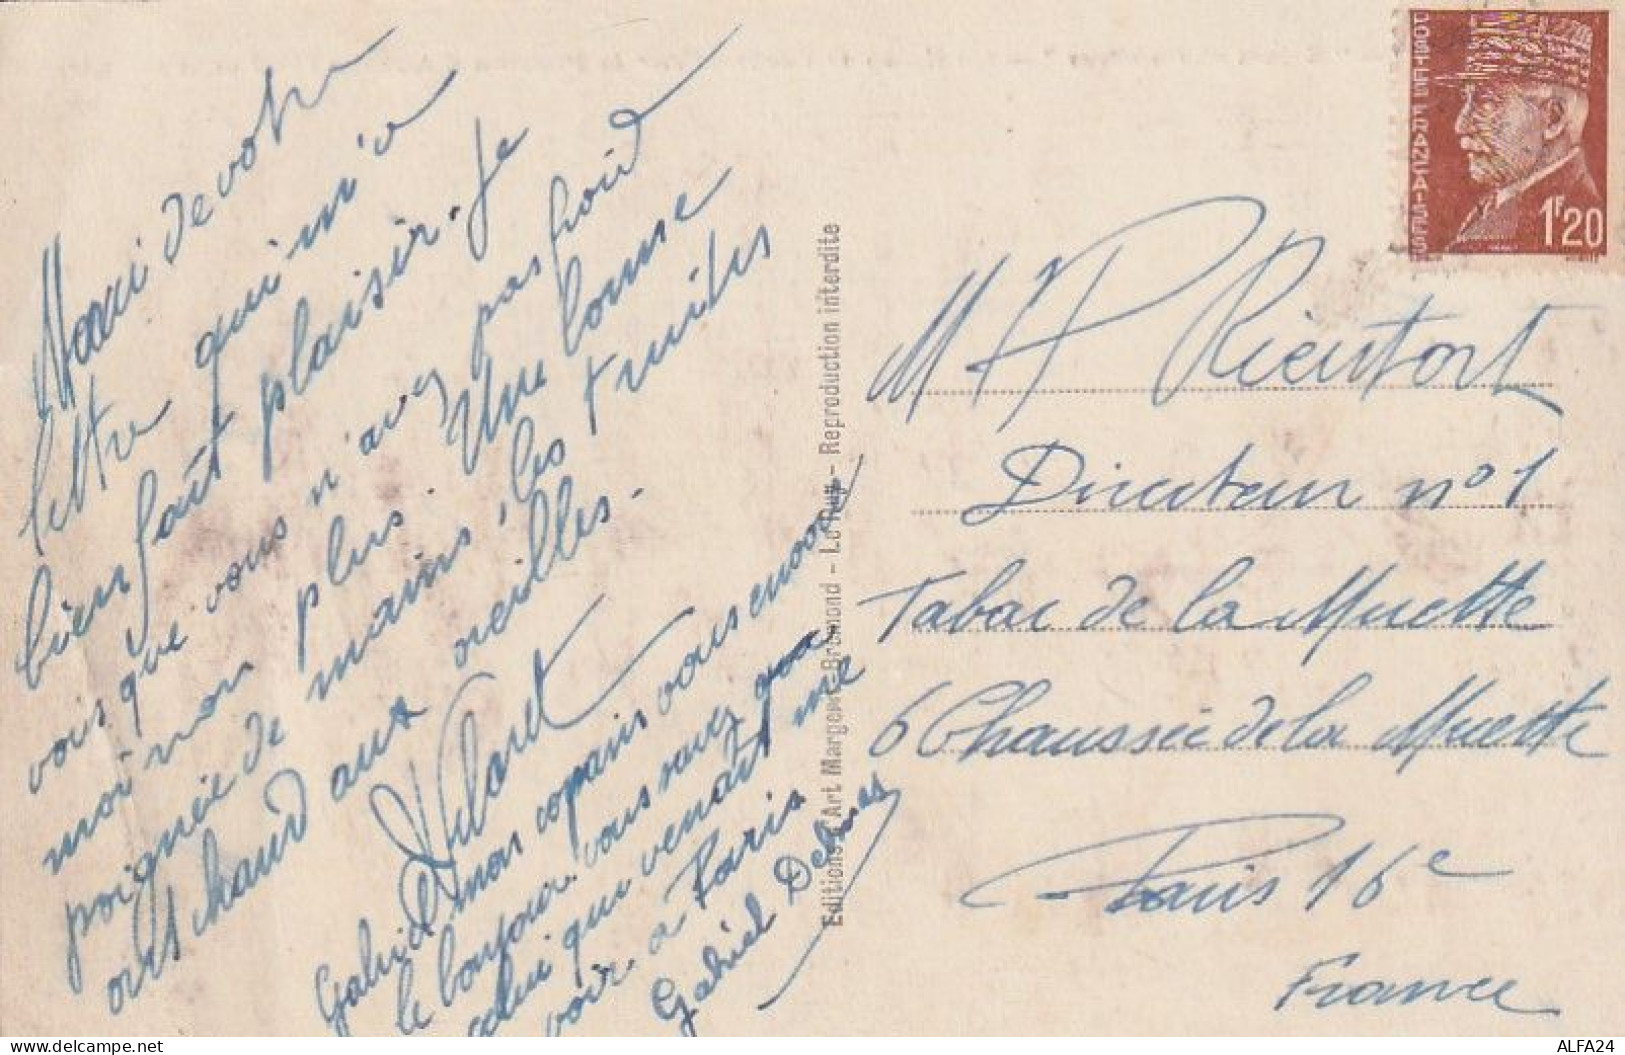 Merci de votre
lettre qui m'a
bien fait plaisir. Je
vois que vous n'avez pas froid
moi non plus. Une bonne
poignée de mains, les truites
ont chaud aux oreilles.
Gabriel mon copain vous envoie
le bonjour. vous savez
celui qui venait me
voir a Paris
Gabriel
Editions d'Art Margerit-Bremond - Le Puy - Reproduction interdite
POSTES FRANÇAISES
1F20
M P Rieutort
Directeur n° 1
Tabac de la Muette
6 Chaussée de la Muette
Paris 16e
France
ALFA24